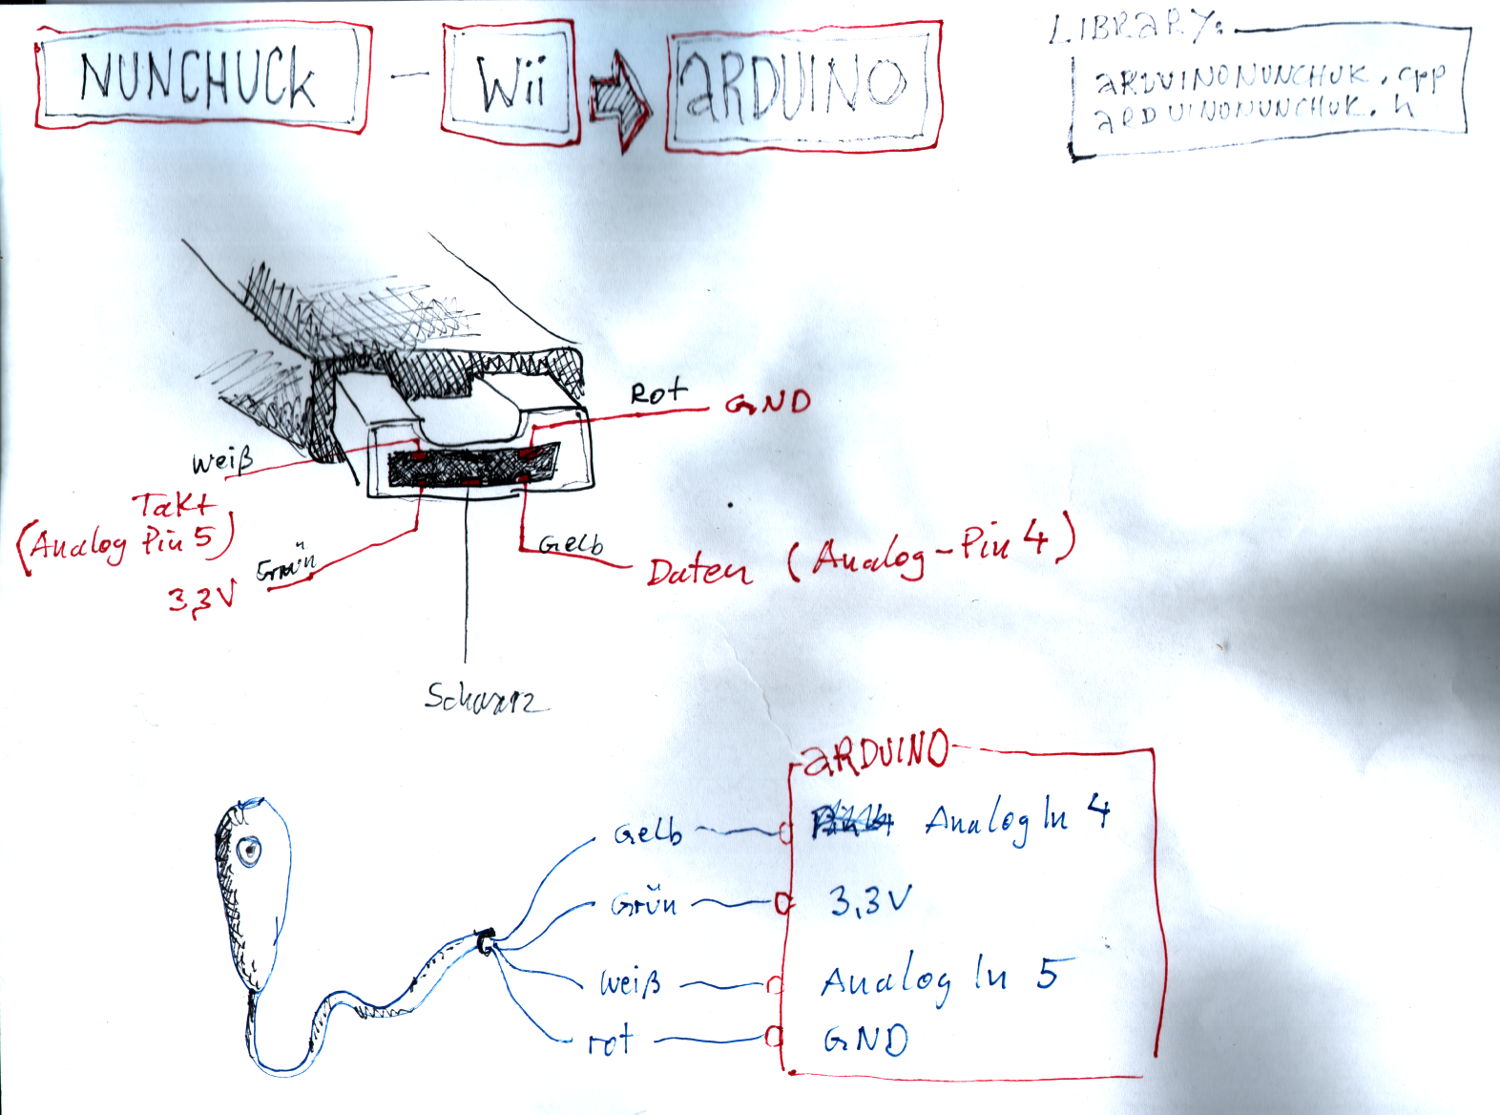 NUNCHUCK – Wii ARDUINO
LIBRARY:
ARDUINONUNCHUK.cpp
ARDUINONUNCHUK.h
Rot GND
Weiß
Takt
(Analog Pin 5)
Grün
3,3V
Gelb
Daten (Analog-Pin 4)
Schwarz
ARDUINO
Gelb Analog In 4
Grün 3,3V
Weiß Analog In 5
rot GND